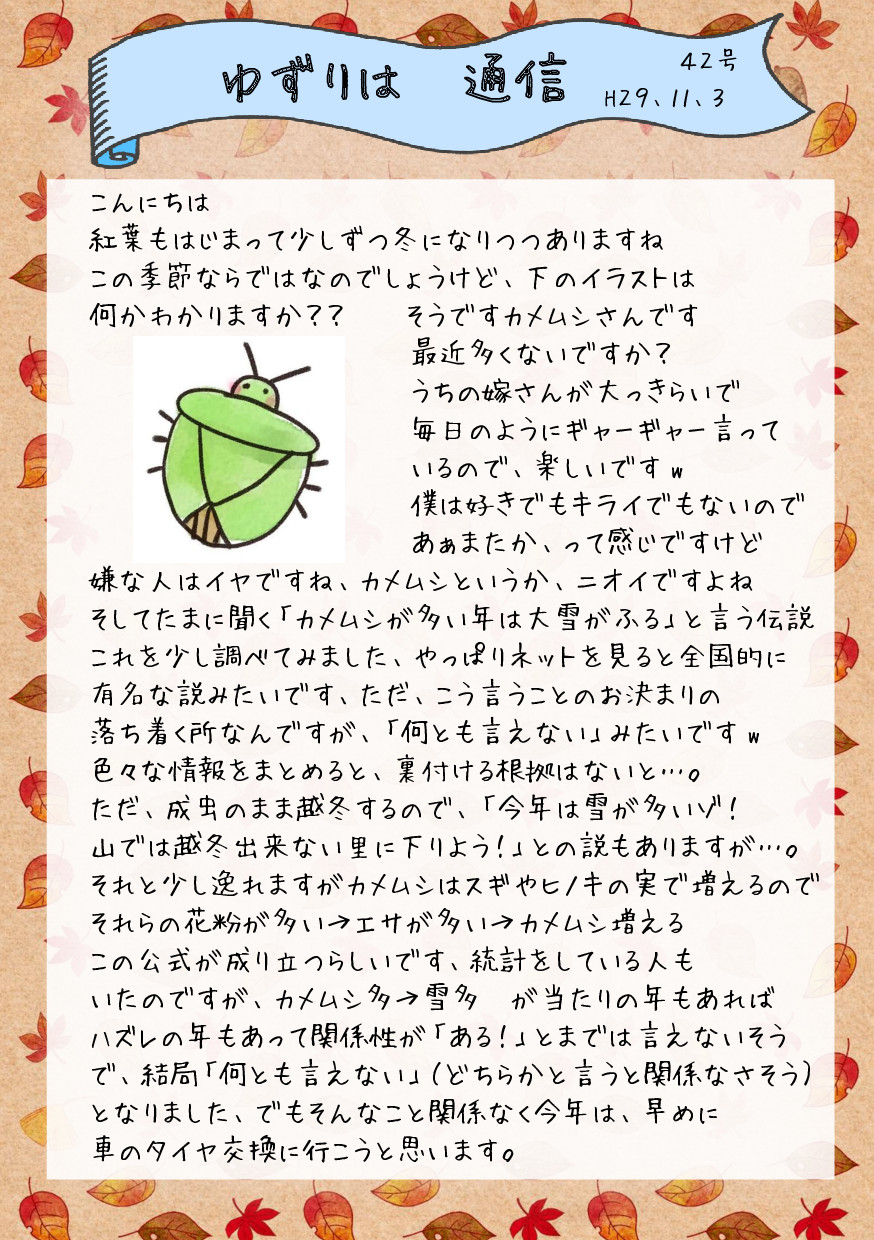 ゆずりは 通信
42号
H29、11、3
こんにちは
紅葉もはじまって少しずつ冬になりつつありますね
この季節ならではなのでしょうけど、下のイラストは
何かわかりますか?? そうですカメムシさんです
最近多くないですか?
うちの嫁さんが大っきらいで
毎日のようにギャーギャー言って
いるので、楽しいですw
僕は好きでもキライでもないので
あぁまたか、って感じですけど
嫌な人はイヤですね、カメムシというか、ニオイですよね
そしてたまに聞く「カメムシが多い年は大雪がふる」と言う伝説
これを少し調べてみました、やっぱりネットを見ると全国的に
有名な説みたいです、ただ、こう言うことのお決まりの
落ち着く所なんですが、「何とも言えない」みたいですw
色々な情報をまとめると、裏付ける根拠はないと…。
ただ、成虫のまま越冬するので、「今年は雪が多いゾ!
山では越冬出来ない里に下りよう!」との説もありますが…。
それと少し逸れますがカメムシはスギやヒノキの実で増えるので
それらの花粉が多い→エサが多い→カメムシ増える
この公式が成り立つらしいです、統計をしている人も
いたのですが、カメムシ多→雪多 が当たりの年もあれば
ハズレの年もあって関係性が「ある!」とまでは言えないそう
で、結局「何とも言えない」(どちらかと言うと関係なさそう)
となりました、でもそんなこと関係なく今年は、早めに
車のタイヤ交換に行こうと思います。